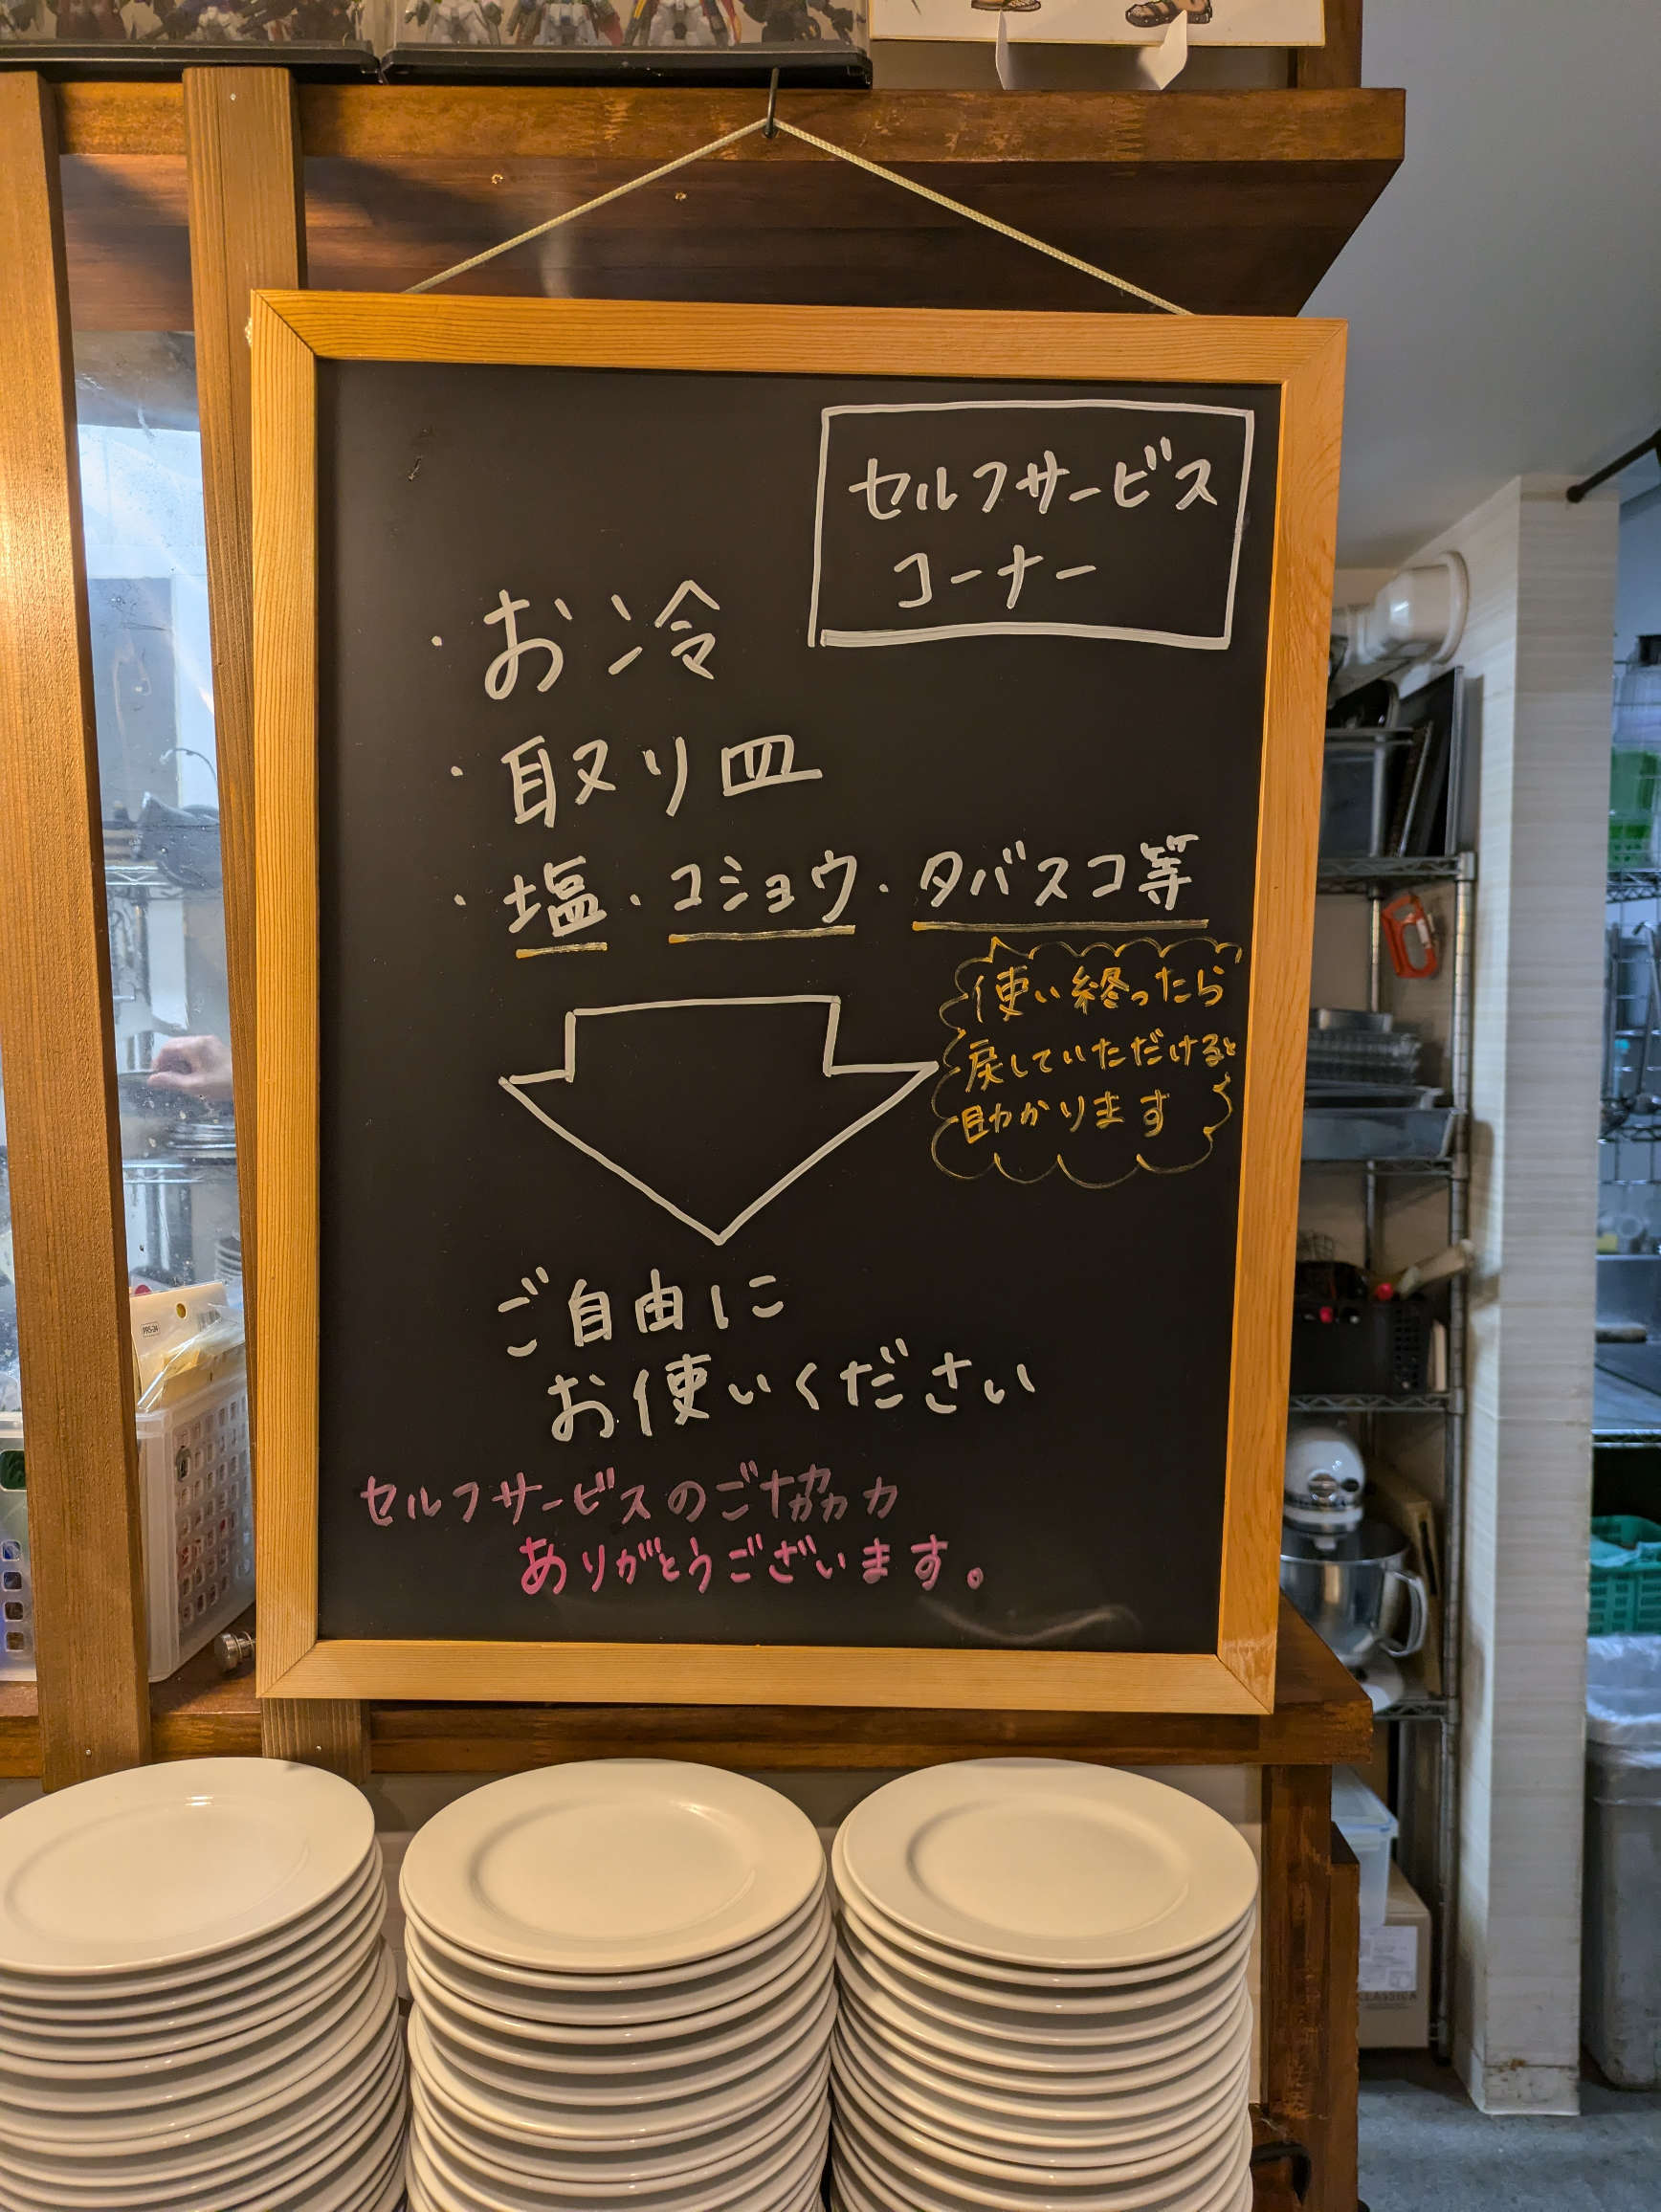 セルフサービス
コーナー
・お冷
・取り皿
・塩・コショウ・タバスコ等
使い終ったら
戻していただけると
助かります
ご自由に
お使いください
セルフサービスのご協力
ありがとうございます。
CLASSICA